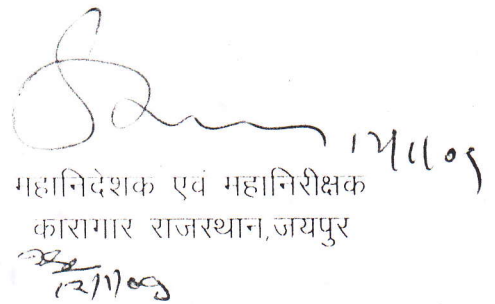 12/1/09
महानिदेशक एवं महानिरीक्षक
कारागार राजस्थान,जयपुर
12/1/09